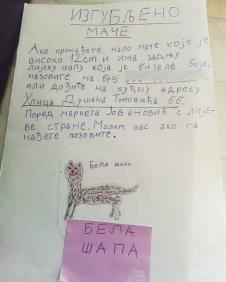 ИЗГУБЉЕНО
МАЧЕ
Ако пронађете мало маче које је
високо 12cm и има задњу
лијеву шапу која је бијеле боје,
назовите на број
или дођите на кућну адресу:
Улица Душана Томовића бб.
Поред маркета Јовановић с лије-
ве стране. Молим вас ако га
нађете позовите.
БЕЛА ШАПА
БЕЛА
ШАПА